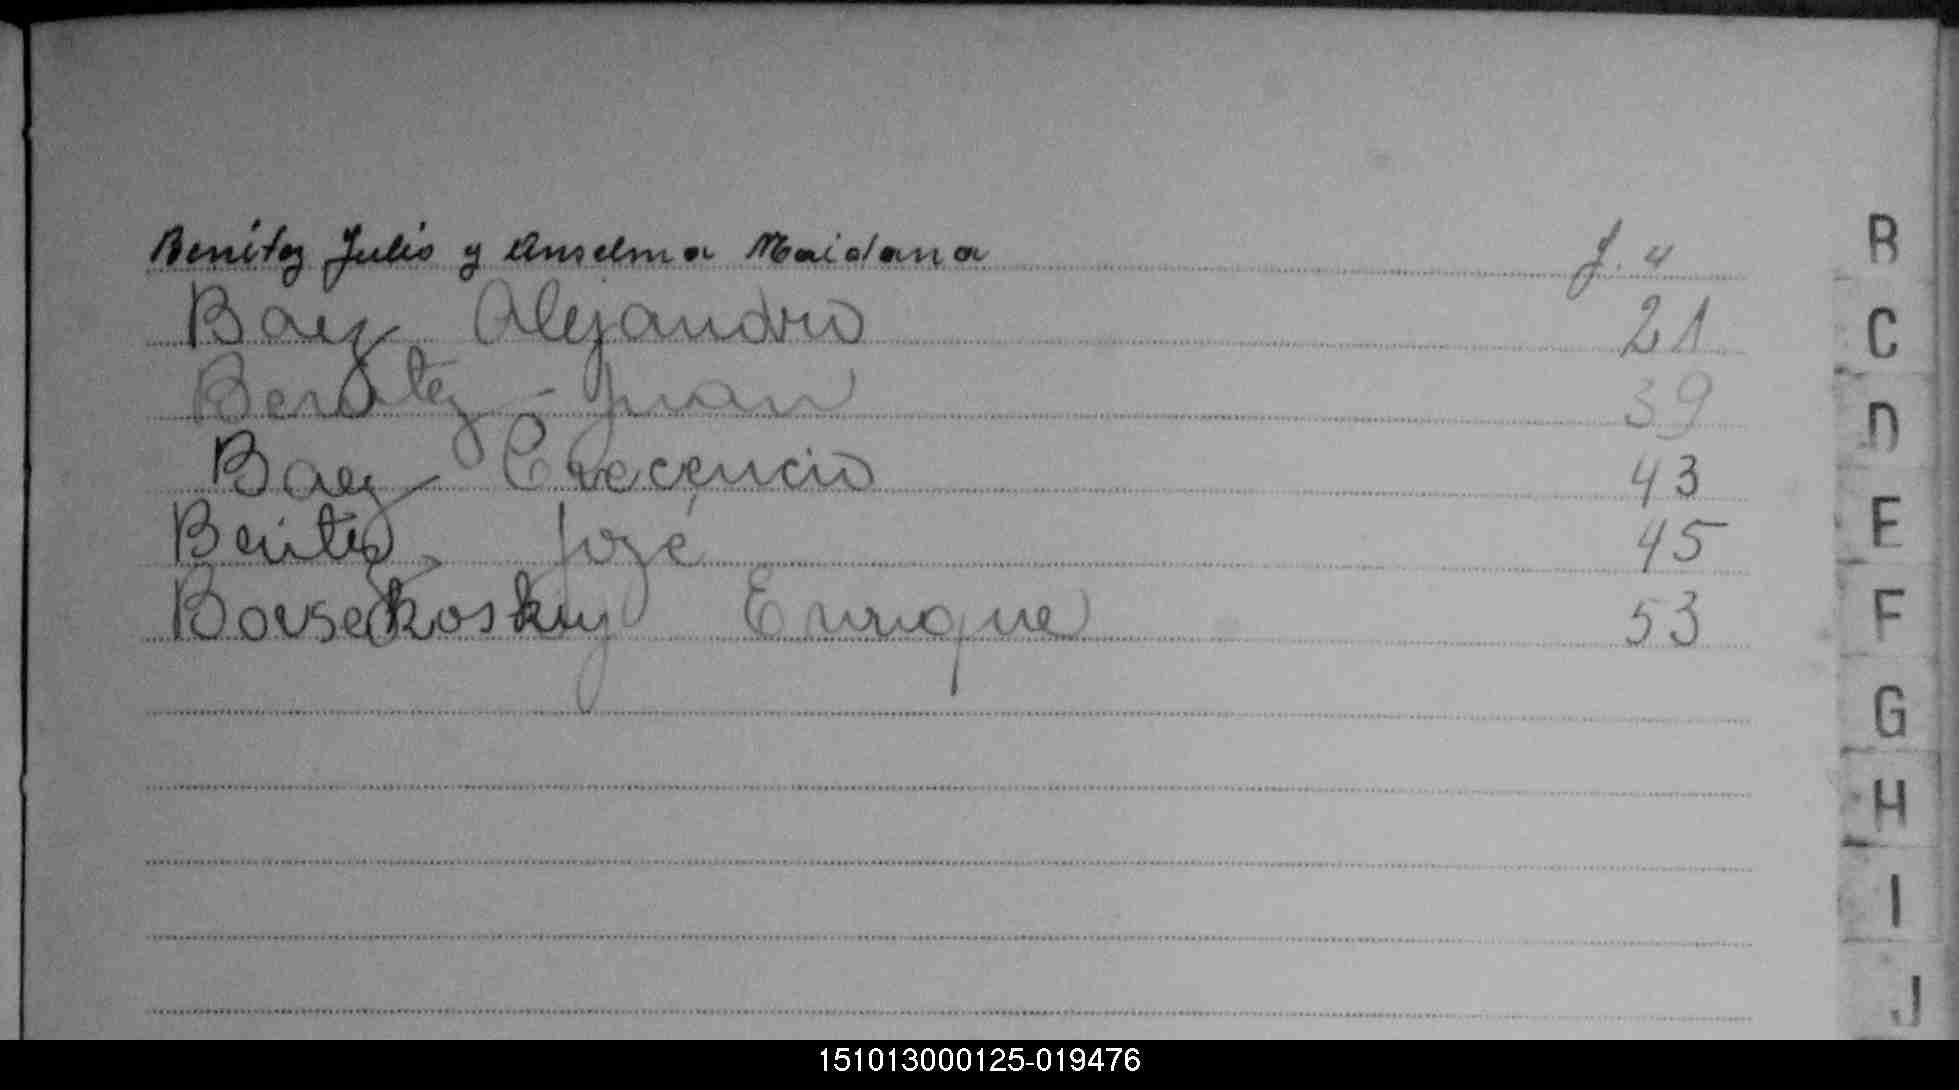 Benítez Julio y Anselma Maidana f. 4
Baez Alejandro 21
Benitez - Juan 39
Baez Crecencio 43
Benitez José 45
Enrique 53
B
C
D
E
F
G
H
I
J
151013000125-019476